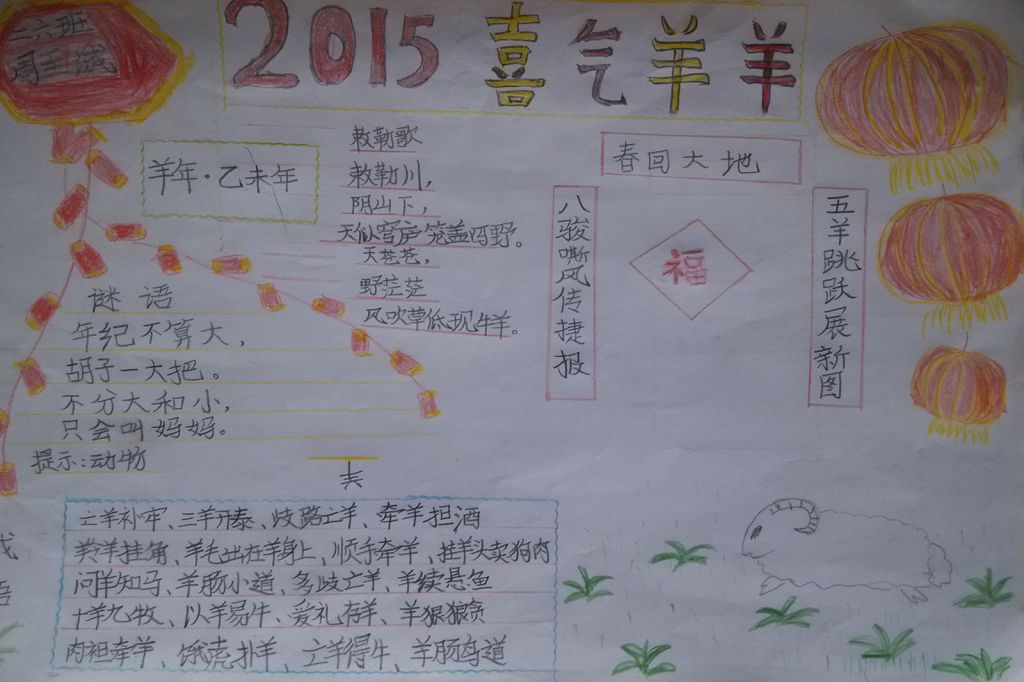 二六班
周
2015喜气羊羊
羊年·乙未年
敕勒歌
敕勒川，
阴山下，
天似穹庐笼盖四野。
天苍苍，
野茫茫
风吹草低现牛羊。
春回大地
八骏嘶风传捷报
福
五羊跳跃展新图
谜语
年纪不算大，
胡子一大把。
不分大和小，
只会叫妈妈。
提示：动物
亡羊补牢、三羊开泰、歧路亡羊、牵羊担酒
羚羊挂角、羊毛出在羊身上、顺手牵羊、挂羊头卖狗肉
问羊知马、羊肠小道、多歧亡羊、羊续悬鱼
十羊九牧、以羊易牛、爱礼存羊、羊狠狼贪
肉袒牵羊、饿虎扑羊、亡羊得牛、羊肠鸟道